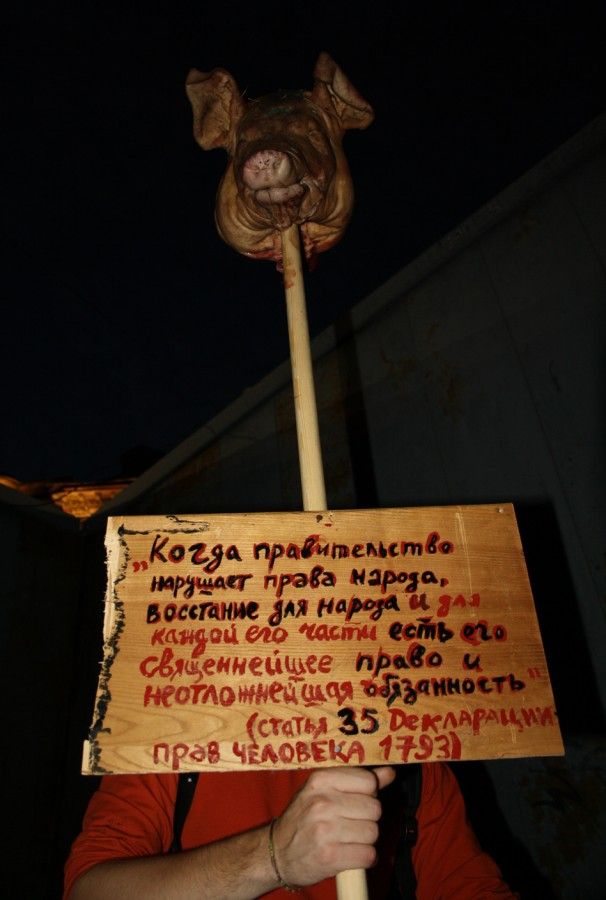 „Когда правительство
нарушает права народа,
восстание для народа и для
каждой его части есть его
священнейшее право и
неотложнейшая обязанность"
(статья 35 Декларации
прав человека 1793)